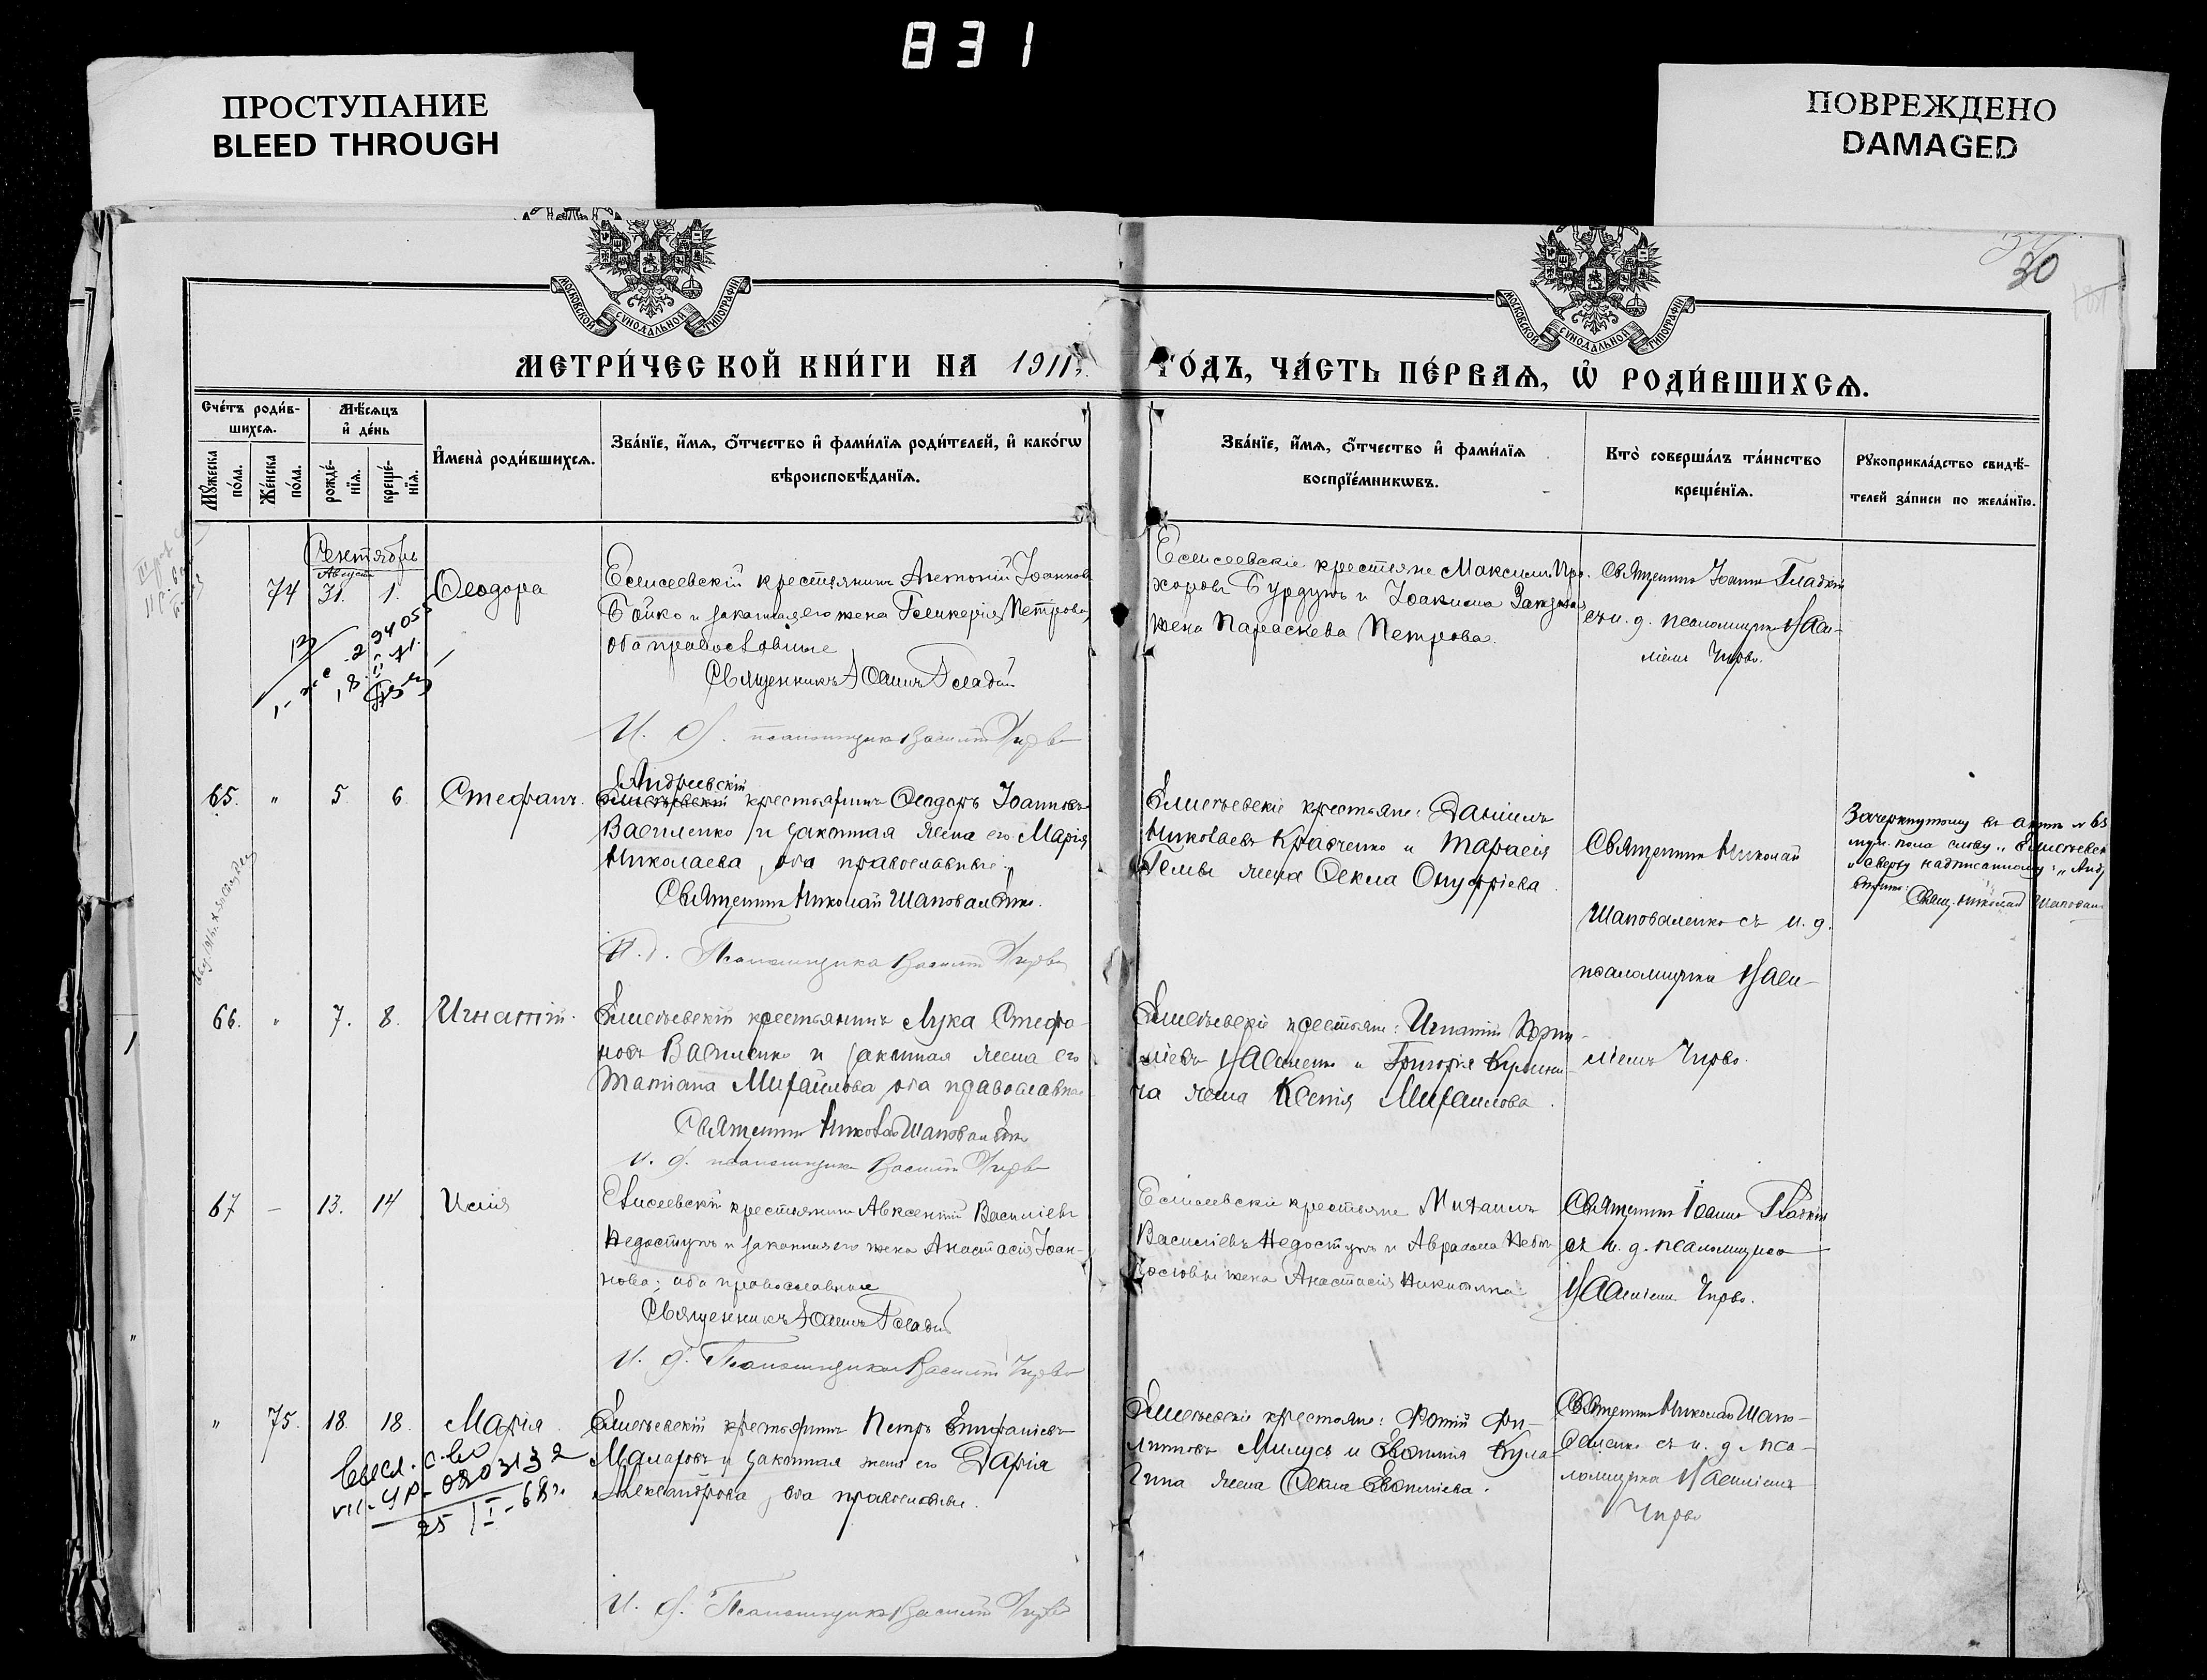 831
ПРОСТУПАНИЕ
BLEED THROUGH
ПОВРЕЖДЕНО
DAMAGED
МОСКОВСКОЙ СѴНОДАЛЬНОЙ ТИПОГРАФІИ
МОСКОВСКОЙ СѴНОДАЛЬНОЙ ТИПОГРАФІИ
30
МЕТРИ́ЧЕСКОЙ КНИ́ГИ НА 1911
ГО́ДЪ, ЧА́СТЬ ПЕ́РВАѦ, Ѡ҆ РОДИ́ВШИХСѦ.
Сче́тъ роди́в-
шихсѧ.
Мꙋ́жеска по́ла.
Же́нска по́ла.
Мѣ́сѧцъ
и҆ де́нь
рожде́-
нїѧ.
креще́-
нїѧ.
И҆мена̀ роди́вшихсѧ.
Зва́нїе, и҆́мѧ, ѻ҆́тчество и҆ фами́лїѧ роди́телей, и҆ како́гѡ
вѣроисповѣ́данїѧ.
Зва́нїе, и҆́мѧ, ѻ҆́тчество и҆ фами́лїѧ
воспрїе́мникѡвъ.
Кто̀ соверша́лъ та́инство
креще́нїѧ.
Рꙋкоприкла́дство свидѣ́-
телей за́писи по жела́нїю.
Сентябрь
Августъ
74 31. 1. Ѳеодора
Елисеевскій крестьянинъ Антоній Іоанновъ
Бойко и законная его жена Гликерія Петрова,
оба православные
Священникъ Іоаннъ Гладкій
И. д. псаломщика Василій Чирво
Елисеевскіе крестьяне Максимъ Про-
хоровъ Бурдунъ и Іоакима
жена Параскева Петрова.
Священникъ Іоаннъ Гладкій
съ и. д. псаломщика Васи-
ліемъ Чирво.
65. " 5 6 Стефанъ.
Андреевскій
Елисѣевскій крестьянинъ Ѳеодоръ Іоанновъ
Василенко и законная жена его Марія
Николаева, оба православные.
Священникъ Николай Шаповаленко.
И. д. Псаломщика Василій Чирво
Елисѣевскіе крестьяне: Даніилъ
Николаевъ Кравченко и Тарасія
жена Ѳекла Онуфріева
Священникъ Николай
Шаповаленко съ и. д.
псаломщика Васи-
ліемъ Чирво.
Зачеркнутому въ актѣ № 65
муж. пола слову „Елисѣевск
и сверху надписанному: „Анд
вѣрить:
Свящ. Николай Шаповал
66. " 7. 8. Игнатій.
Елисѣевскій крестьянинъ Лука Стефа-
новъ Василенко и законная жена его
Татіана Михайлова оба православные
Священникъ Николай Шаповаленко
И. д. псаломщика Василій Чирво
Елисѣевскіе крестьяне: Игнатій Корни-
ліевъ Василенко и Григорія
жена Ксенія Михаилова.
67 – 13. 14 Иліа
Елисеевскій крестьянинъ Авксентій Василіевъ
Недоступъ и законная его жена Анастасія Іоан-
нова; оба православные
Священникъ Іоаннъ Гладкій
И. д. Псаломщика Василій Чирво
Елисеевскіе крестьяне Михаилъ
Василіевъ Недоступъ и Авраама
жена Анастасія Никитина
Священникъ Іоаннъ Гладкій
съ и. д. псаломщика
Василіемъ Чирво.
" 75. 18. 18. Марія
Елисѣевскій крестьянинъ Петръ Епифаніевъ
Маларовъ и законная жена его Дарія
Александрова, оба православные.
И. д. Псаломщика Василій Чирво
Елисѣевскіе крестьяне: Фотій Фи-
липповъ Милусь и Евѳимія
жена Ѳекла Евѳиміева.
Священникъ Николай Шапо-
валенко съ и. д. пса-
ломщика Василіемъ
Чирво